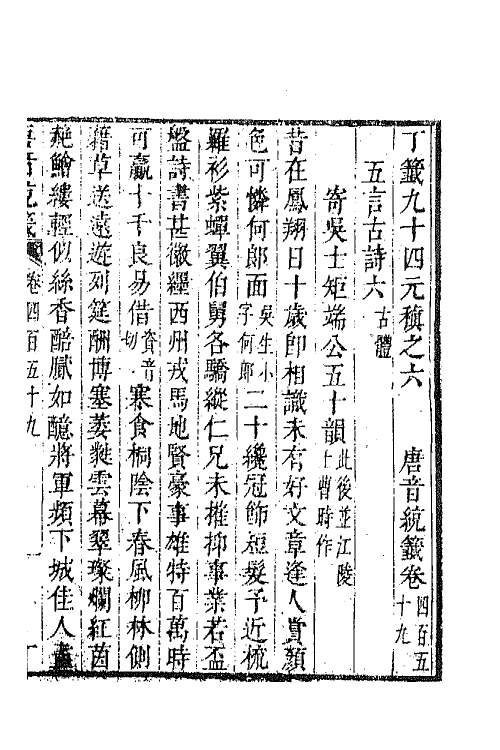 丁籤九十四元稹之六　唐音統籤卷四百五十九
五言古詩六古體
寄吳士矩端公五十韻此後並江陵士曹時作
昔在鳳翔日十歲卽相識未有好文章逢人賞顏
色可憐何郎面吳生小字何郎二十纔冠飾短髮予近梳
羅衫紫蟬翼伯舅各驕縱仁兄未摧抑事業若盃
盤詩書甚徽纆西州戎馬地賢豪事雄特百萬時
可贏十千良易借資昔切寒食桐陰下春風柳林側
藉草送遠遊列筵酬博塞萎蕤雲幕翠璨爛紅茵
赩鱠縷輕似絲香醅膩如䤈將軍頻下城佳人盡
唐音統籤 卷四百五十九